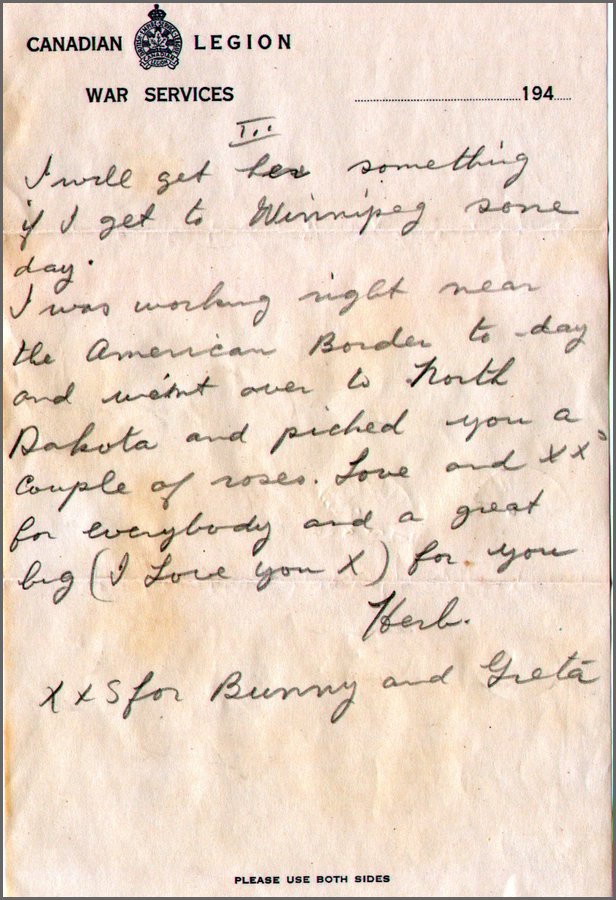 CANADIAN LEGION
WAR SERVICES 194
I will get her something
if I get to Winnipeg some
day.
I was working right near
the American Border to-day
and went over to North
Dakota and picked you a
couple of roses. Love and XXs
for everybody and a great
big (I Love you X) for you
Herb.
XXS for Bunny and Greta
PLEASE USE BOTH SIDES